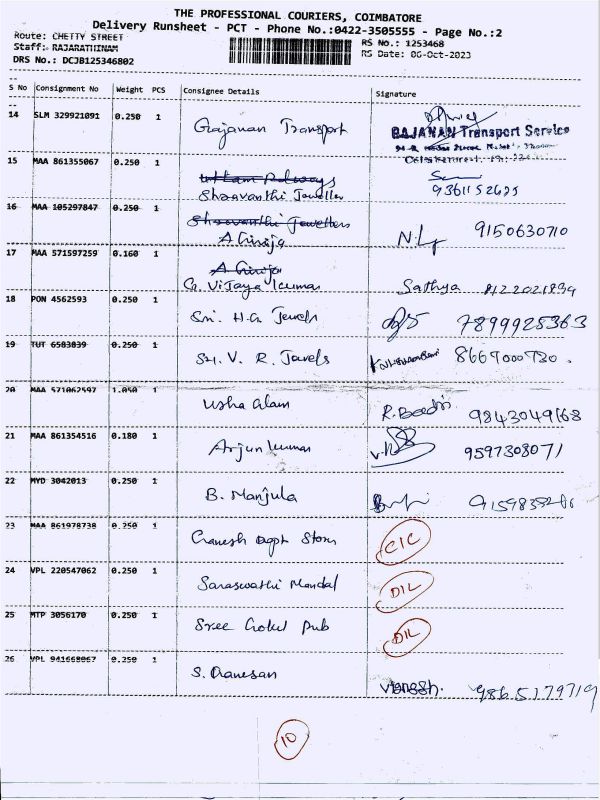 THE PROFESSIONAL COURIERS, COIMBATORE
Delivery Runsheet - PCT - Phone No.:0422-3505555 - Page No.:2
Route: CHETTY STREET
RS No.: 1253468
Staff: RAJARATHINAM
RS Date: 06-Oct-2023
DRS No.: DCJB125346802
S No Consignment No Weight PCS Consignee Details Signature
14 SLM 329921091 0.250 1 Gajanan Transport
BAJANAN Transport Service
15 MAA 861355067 0.250 1 Uttam Polways
Shravanthi Jeweller 9361152625
16 MAA 105297847 0.250 1 Shravanthi Jewellers
A Girija 9150630710
17 MAA 571597259 0.160 1 A Girija
G. Vijaya kumar Sathya 8122021894
18 PON 4562593 0.250 1 Sri. H.G Jewels 7899925363
19 TUT 6583839 0.250 1 SH. V. R. Jewels 8667000730.
20 MAA 571062597 1.050 1
Usha alam R. Badri 9843049168
21 MAA 861354516 0.180 1 Arjun kumar 9597308071
22 MYD 3042013 0.250 1 B. Manjula
23 MAA 861978738 0.250 1 Ganesh Dept Stores CIC
24 VPL 220547062 0.250 1 Saraswathi Mandal DIL
25 MTP 3056170 0.250 1 Sree Gokul Pub DIL
26 VPL 941668067 0.250 1 S. Ganesan
Vignesh. 9865179719
10